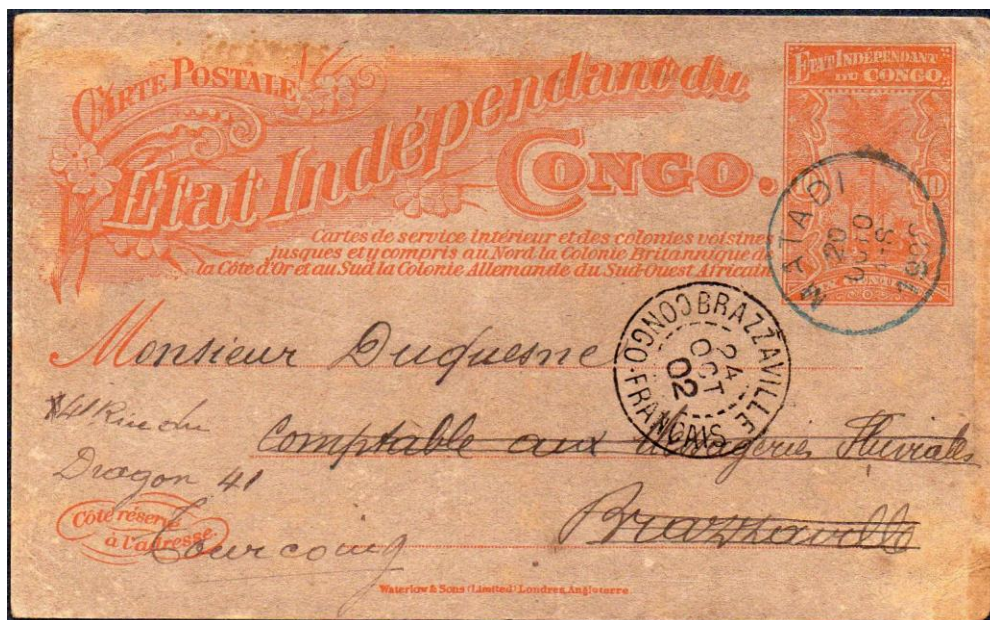 CARTE POSTALE
Etat Indépendant du
CONGO.
ETAT INDÉPENDANT
DU CONGO.
10
Cartes de service intérieur et des colonies voisines
jusques et y compris au Nord la Colonie Britannique de
la Côte d'Or et au Sud la Colonie Allemande du Sud-Ouest Africain
MATADI
20
OCTO
1902
BRAZZAVILLE
CONGO-FRANÇAIS
24
OCT
02
Monsieur Duquesne
Comptable aux Messageries Fluviales
Brazzaville
41 Rue du
Dragon 41
Tourcoing
Côté réservé
à l'adresse.
Waterlow & Sons (Limited) Londres, Angleterre